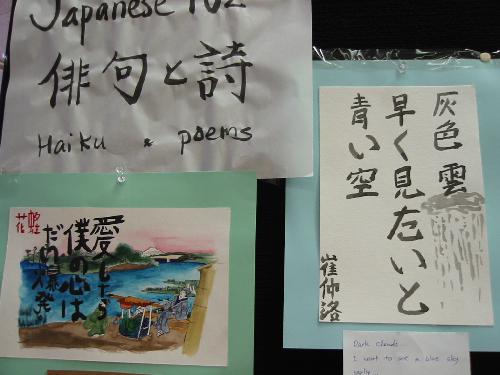 Japanese 102
俳句と詩
Haiku & poems
愛したら
僕の心は
爆発
灰色 雲
早く見たいと
青い空
崔仲洛
Dark clouds
I want to see a blue sky
early